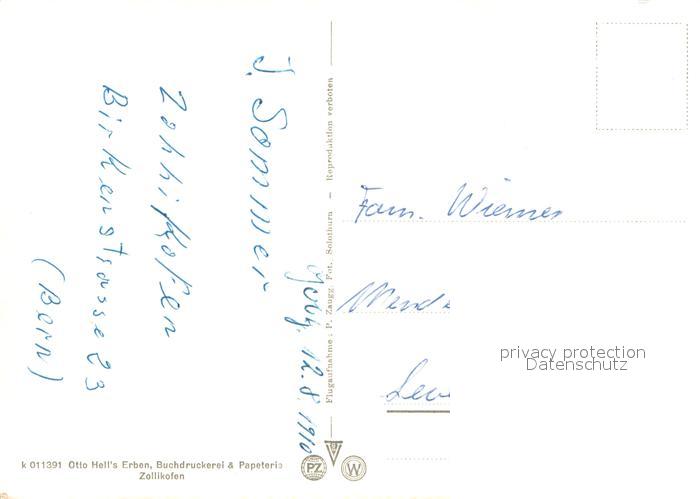 J. Sommer
Zollikofen
Birkenstrasse 23
(Bern)
12.8.
Flugaufnahme: P. Zaugg, Fot., Solothurn – Reproduktion verboten
Fam. Wiemer
privacy protection
Datenschutz
k 011391 Otto Hell's Erben, Buchdruckerei & Papeterie
Zollikofen
PZ
W